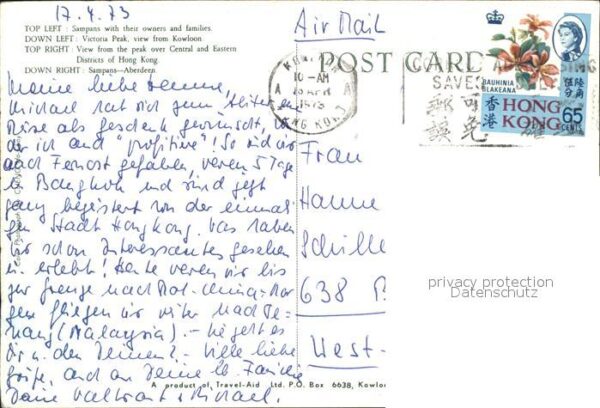 17.4.73
TOP LEFT : Sampans with their owners and families.
DOWN LEFT : Victoria Peak, view from Kowloon.
TOP RIGHT : View from the peak over Central and Eastern
Districts of Hong Kong
DOWN RIGHT : Sampans—Aberdeen.
Air Mail
POST CARD
10-AM
1973
HONG KONG
SAVES
郵
可
免
誤
BAUHINIA
BLAKEANA
香港
HONG
KONG
65
CENTS
Meine liebe Hanne,
Michael hat sich zum
Reise als Geschenk gewünscht, von
der ich auch "profitiere"! So sind wir
nach Fernost gefahren, waren 5 Tage
in Bangkok und sind jetzt
ganz begeistert von der einmali-
gen Stadt Hongkong. Was haben
wir schon Interessantes gesehen
u. erlebt! Heute waren wir bis
zur Grenze nach Rot-China. Mor-
gen fliegen wir weiter nach Pe-
nang (Malaysia). - Wie geht es
Dir u. den Deinen? - Viele liebe
Grüße, auch an Deine lb. Familie
Deine Waltraut + Michael.
Frau
Hanne
Schille
638
West-
privacy protection
Datenschutz
A product of Travel-Aid Ltd. P.O. Box 6638, Kowloo